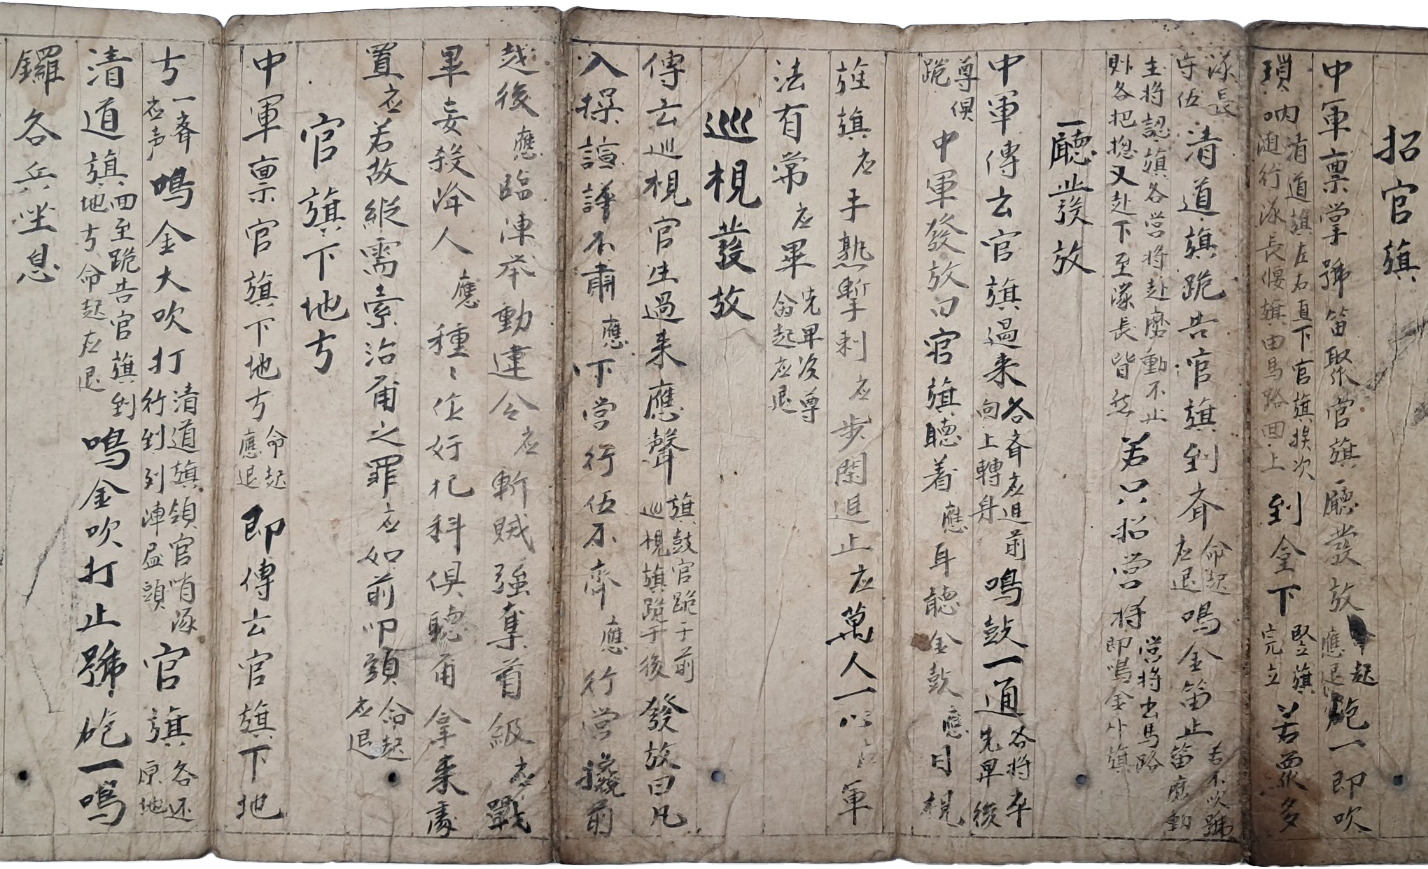 招官旗
中軍稟掌號笛聚官旗廳發放應退起砲一即吹
瑣吶清道旗左右直下官旗挨次隨行隊長偃旗由馬路回上到金下竪旗完立若眾多
隊長守伍清道旗跪告官旗到齊命起應退鳴金笛止若不吹號笛磨動
主將認旗各營將赴磨動不止卟各把摠又赴下至隊長皆然若只招營將營將出馬路即鳴金小旗
廳發放
中軍傳云官旗過来各齊应進前向上轉身鳴鼓一通各將卒先卑後
尊俱跪中軍發放曰官旗聽着應耳聽金鼓應目視
旌旗应手熟擊刺应步閑進止应萬人一心应軍
法有常应畢先卑後尊命起应退
巡視發放
傳云巡視官生過来應聲旗鼓官跪于前巡視旗跪于後發放曰凡
入操諠譁不肅應下營行伍不齊應行營攙前
越後應臨陣举動違令应斬賊強奪首級应戰
畢妄殺降人應種〻作奸犯科俱聽甬拿来處
置应若故縱需索治甬之罪应如前叩頭命起应退
官旗下地方
中軍稟官旗下地方命起應退即傳云官旗下地
方一齊应声鳴金大吹打清道旗領官哨隊行到列陣盡頭官旗各还原地
清道旗回至跪告官旗到地方命起应退鳴金吹打止號砲一鳴
鑼各兵坐息